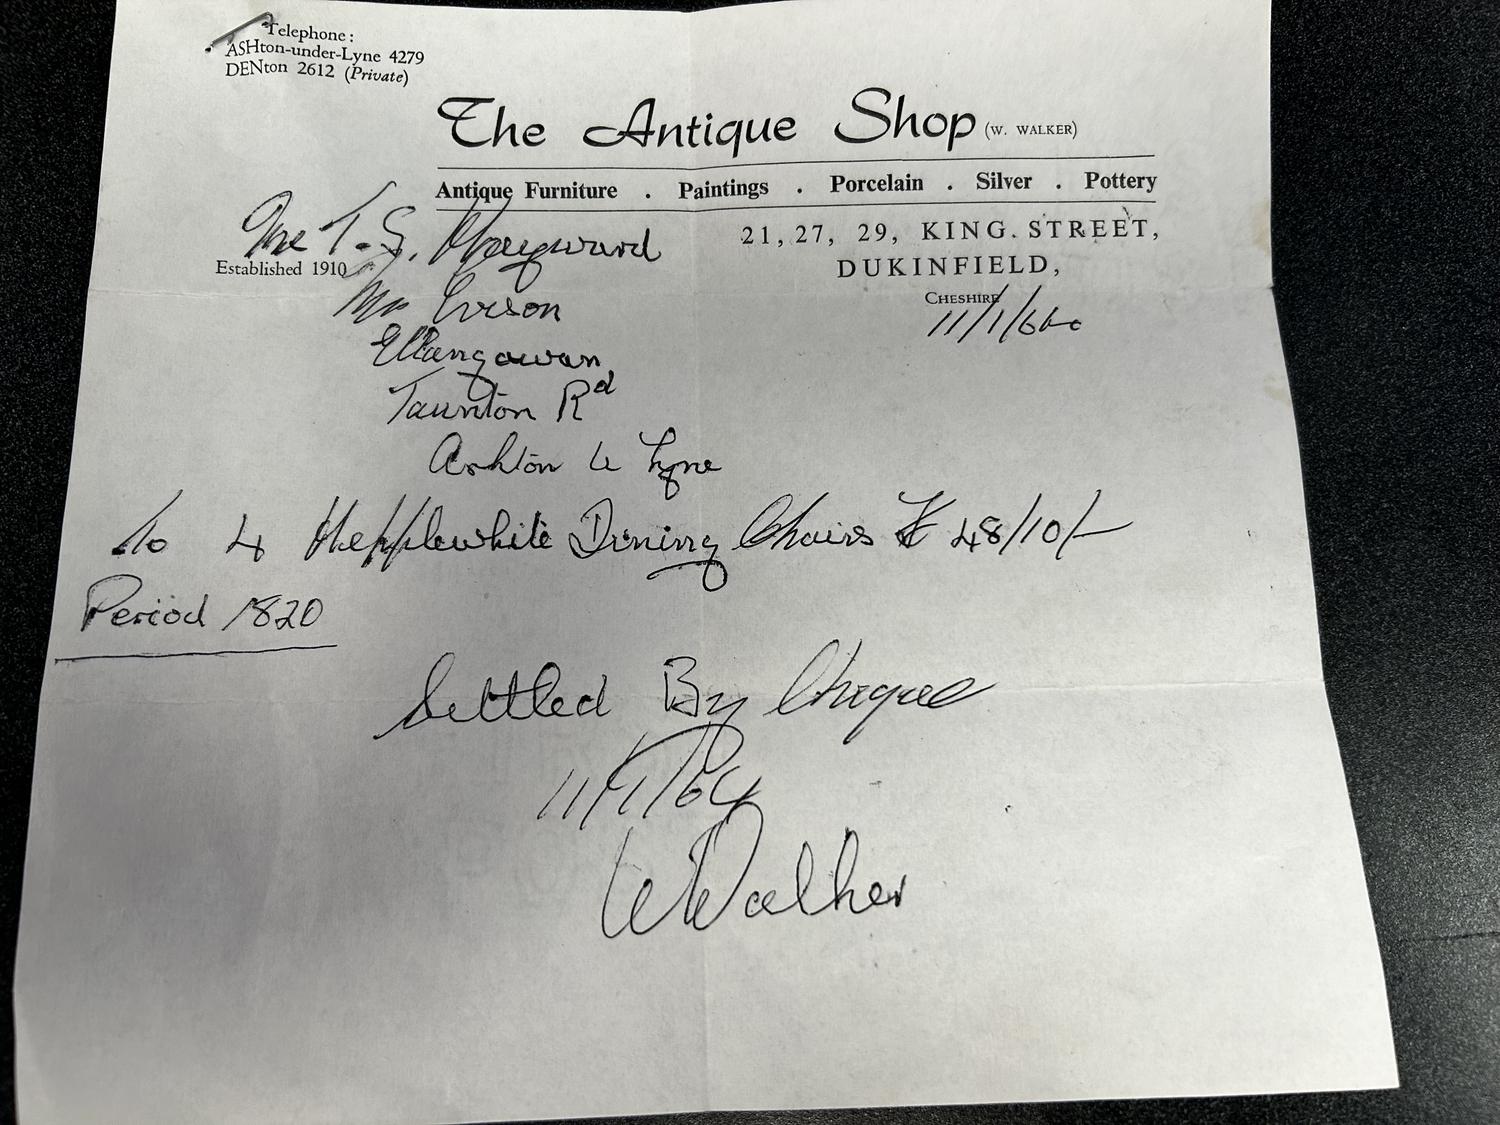 Telephone:
ASHton-under-Lyne 4279
DENton 2612 (Private)
The Antique Shop (W. WALKER)
Antique Furniture . Paintings . Porcelain . Silver . Pottery
21, 27, 29, KING. STREET,
DUKINFIELD,
CHESHIRE
Established 1910
T. S. Hayward
Ellangowan
Taunton Rd
Ashton U Lyne
To 4 Hepplewhite Dining Chairs £ 48/10/-
Period 1820
Settled By Cheque
W Walker